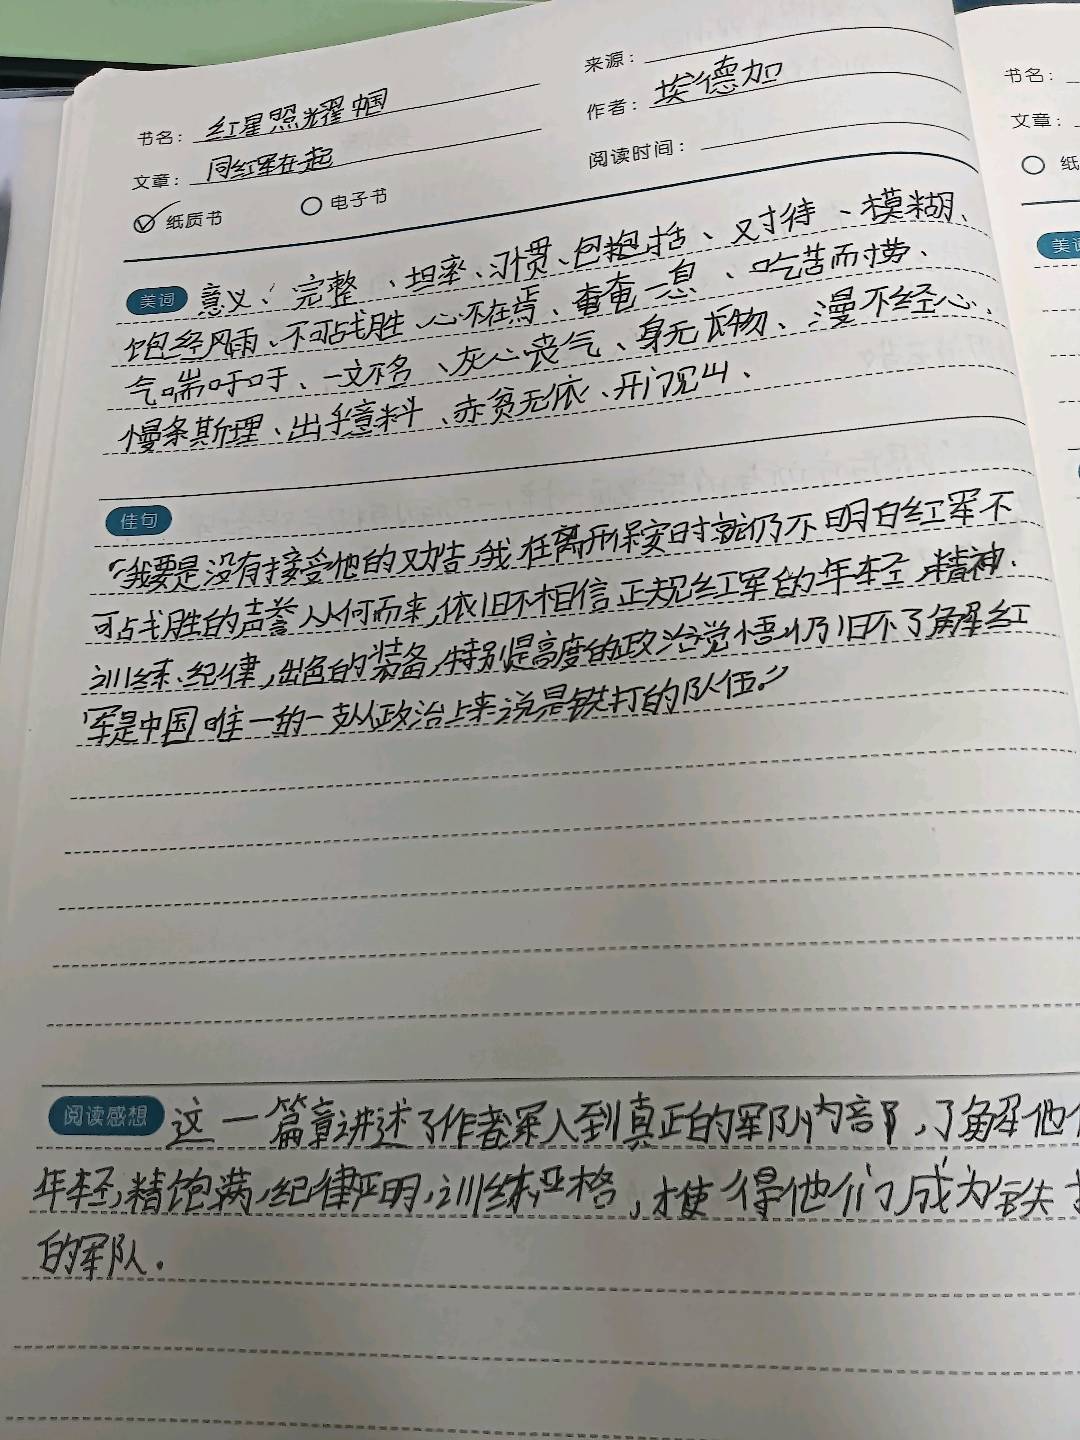 来源：
书名：红星照耀中国
作者：埃德加
文章：同红军在一起
阅读时间：
纸质书
电子书
美词
意义、完整、坦率、习惯、包抱括、对待、模糊、
饱经风雨、不可战胜、心不在焉、奄奄一息、吃苦耐劳、
气喘吁吁、一文不名、灰心丧气、身无长物、漫不经心、
慢条斯理、出乎意料、赤贫无依、开门见山、
佳句
“我要是没有接受他的劝告，我在离开保安时就仍不明白红军不
可战胜的声誉从何而来，依旧不相信正规红军的年轻，精神．
训练、纪律，出色的装备，特别是高度的政治觉悟，仍旧不了解红
军是中国唯一的一支从政治上来说是铁打的队伍。”
阅读感想
这一篇章讲述了作者深入到真正的军队内部，了解他
年轻，精饱满，纪律严明，训练严格，才使得他们成为铁
的军队．
书名：
文章：
纸
美